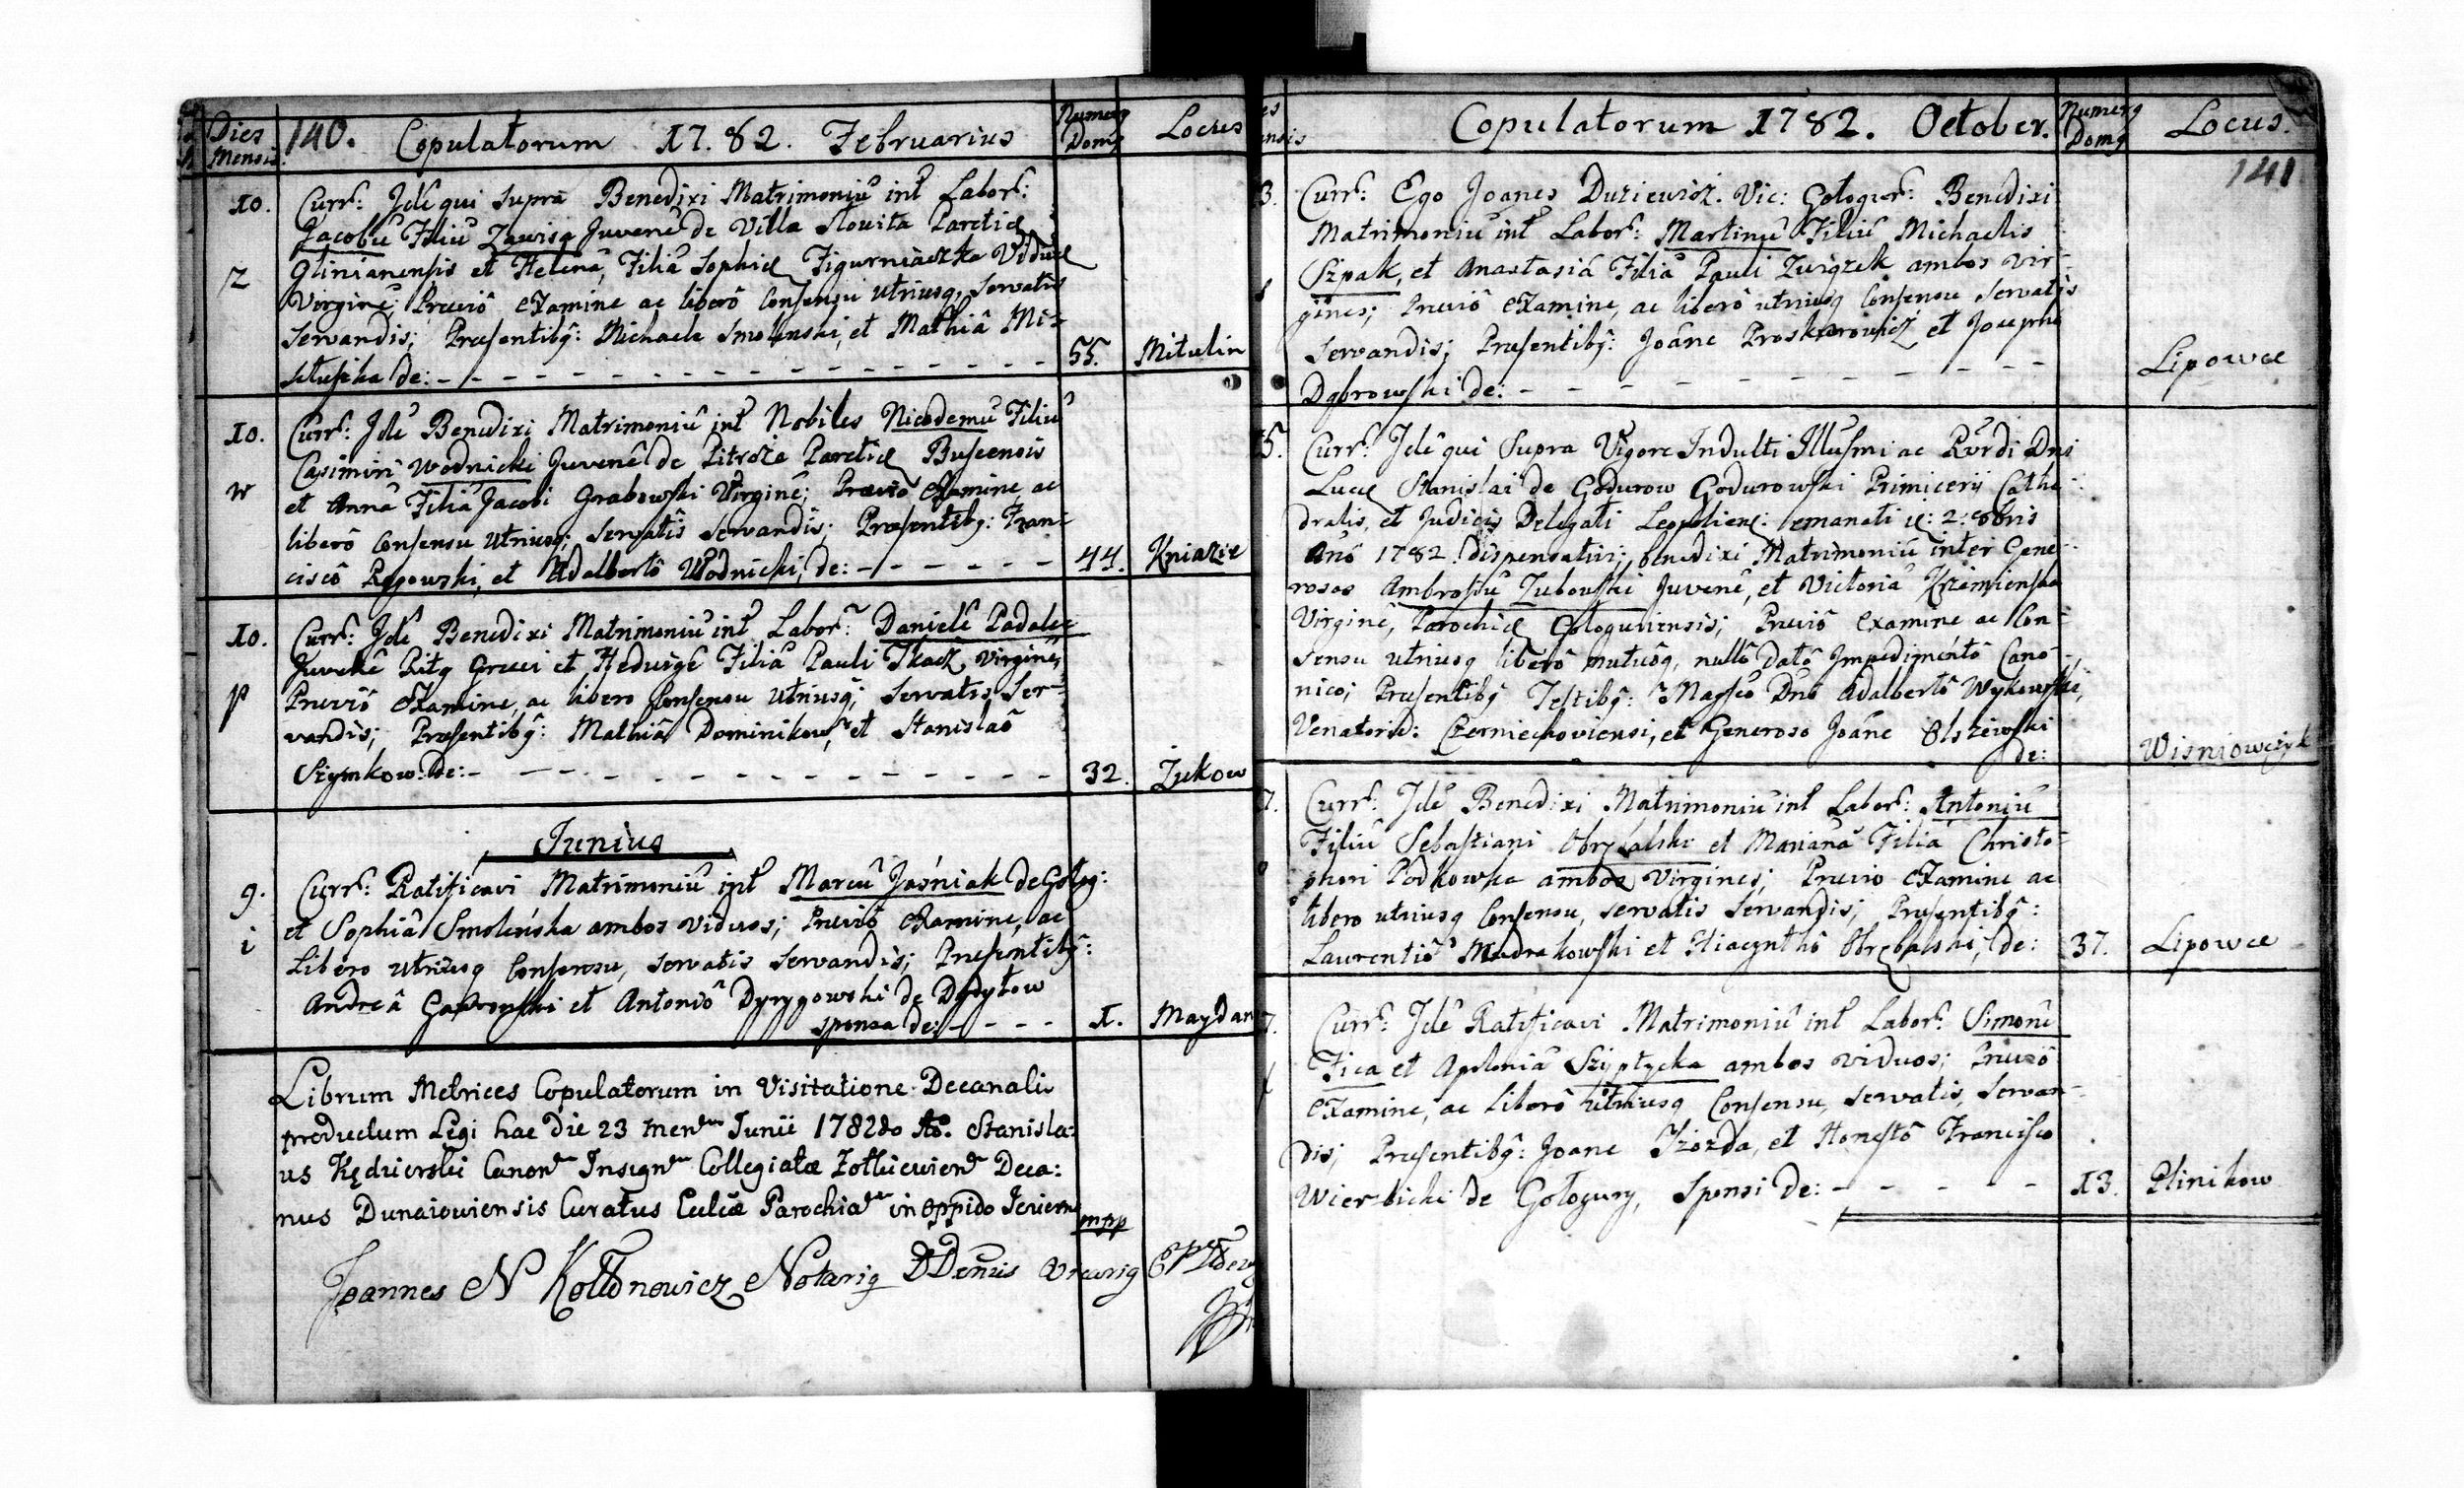 Dies Mensis
140. Copulatorum 17.82. Februarius
Numerꝯ Domꝯ
Locus
10.
Currt: Jdē qui Supra Benedixi Matrimoniū int Labort:
Jacobū Filiū Zawisa Juvenē de Villa Slowita Paroctiæ
z
Glinianensis et Helenā, Filiā Sophiæ Figurniaczka Viduæ
Virginē; Præviô Examine ac liberô Consensu utriusq, Servatis
Servandis; Præsentibꝯ: Michaele Smolenski, et Mathiâ Mi-
de: - - - - 55. Mitulin
10.
Currt: Jdē Benedixi Matrimoniū int Nobiles Nicodemū Filiū
Casimiri Wodnicki Juvenē de Paroctiæ Buscensis
w
et Annā Filiā Jacobi Grabowski Virginē; Præviô Examine ac
liberô Consensu utriusq; Servatis Servandis; Præsentibꝯ: Fran-
ciscô et Adalbertô Wodnicki, de: - - - - 44. Kniazie
10.
Currt: Jdē Benedixi Matrimoniū int Labort: Danielē Padalec
Juvenē Ritꝯ Græci et Hedvigē Filiā Pauli Tkacz, Virginē,
p
Præviô Examine, ac libero Consensu utriusq; Servatis Ser-
vandis; Præsentibꝯ: Mathiâ Dominikow, et Stanislaô
Szymkow: de: - - - - 32. Żukow
Junius
9.
Currt: Ratificavi Matrimoniū int Marcū Jaśniak de Gołog:
i
et Sophiā Smoleńska ambos viduos; Præviô Examine, ac
Libero utriusq Consensu, Servatis Servandis; Præsentibꝯ:
Andreâ et Antoniô Dyrygowski de Dydytow
sponsa de: - - - - 1. Maydan
Librum Metrices Copulatorum in Visitatione Decanali
productum Legi hac Die 23 Junii 1782do Stanisla=
us Kędzierski Canon Insign Collegiatæ Zołkiewien Deca:
nus Dunaiowiensis Curatus Ecclæ Parochia in Oppido
mpp
Joannes N Kołłonowicz Notariꝯ
Copulatorum 1782. October.
Numerꝯ Domꝯ
Locus.
141
3.
Currt: Ego Joanes Duziewicz. Vic: Gologurt: Benedixi
Matrimoniū int Labort: Martinū Filiū Michaelis
Szpak, et Anastasiā Filiā Pauli Związek ambos vir-
gines; Præviô Examine, ac liberô utriusq Consensu Servatis
Servandis; Præsentibꝯ: Joâne et Josepho
Dąbrowski de: - - - - Lipowce
5.
Currt: Jdē qui Supra Vigore Indulti Illusmi ac Rvrdi Dni
Lucæ Stanislai de Godurow Godurowski Primicerii Cathe-
dralis, et Judicis Delegati Leopolien: emanati d: 2: 8bris
Anô 1782. dispensativi; benedixi Matrimoniū inter Gene-
rosos Ambrosiū Zubowski Juvenē, et Victoriā Krzemienska
Virginē, Parochiæ Gologurensis; Præviô Examine ac Con-
sensu utriusq liberô mutuôq, nullô datô Impedimentô Cano-
nico; Præsentibꝯ Testibꝯ: Magfco Dnô Adalbertô Wykowski,
Venatorid: Czerniechoviensi, et Generoso Joâne Olszewski
de: Wisniowczyk
7.
Currt: Jdē Benedixi Matrimoniū int Labort: Antoniū
Filiū Sebastiani et Mariannā Filiā Christo-
phori Podkowka ambos Virgines; Prævio Examine ac
libero utriusq Consensu, servatis Servandis; Præsentibꝯ:
Laurentiô Madrakowski et Hiacynthô Obrębalski, de: 37. Lipowce
7.
Currt: Jdē Ratificavi Matrimoniū int Labort: Simonē
Fica et Apoloniā Szyptycka ambos viduos; Præviô
Examine, ac liberô utriusq Consensu, servatis, Servan-
dis; Præsentibꝯ: Joane et Honestô Francisco
Wierzbicki de Gołogury, Sponsi de: - - - - 13. Plinikow